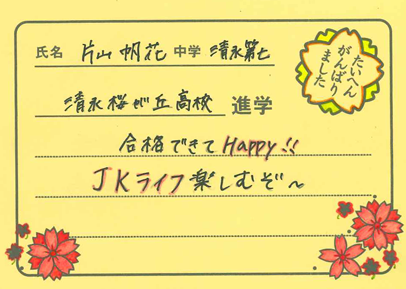 氏名 片山帆花 中学 清水第七
たいへん
がんばり
ました
清水桜が丘高校 進学
合格できてHappy!!
JKライフ楽しむぞ〜